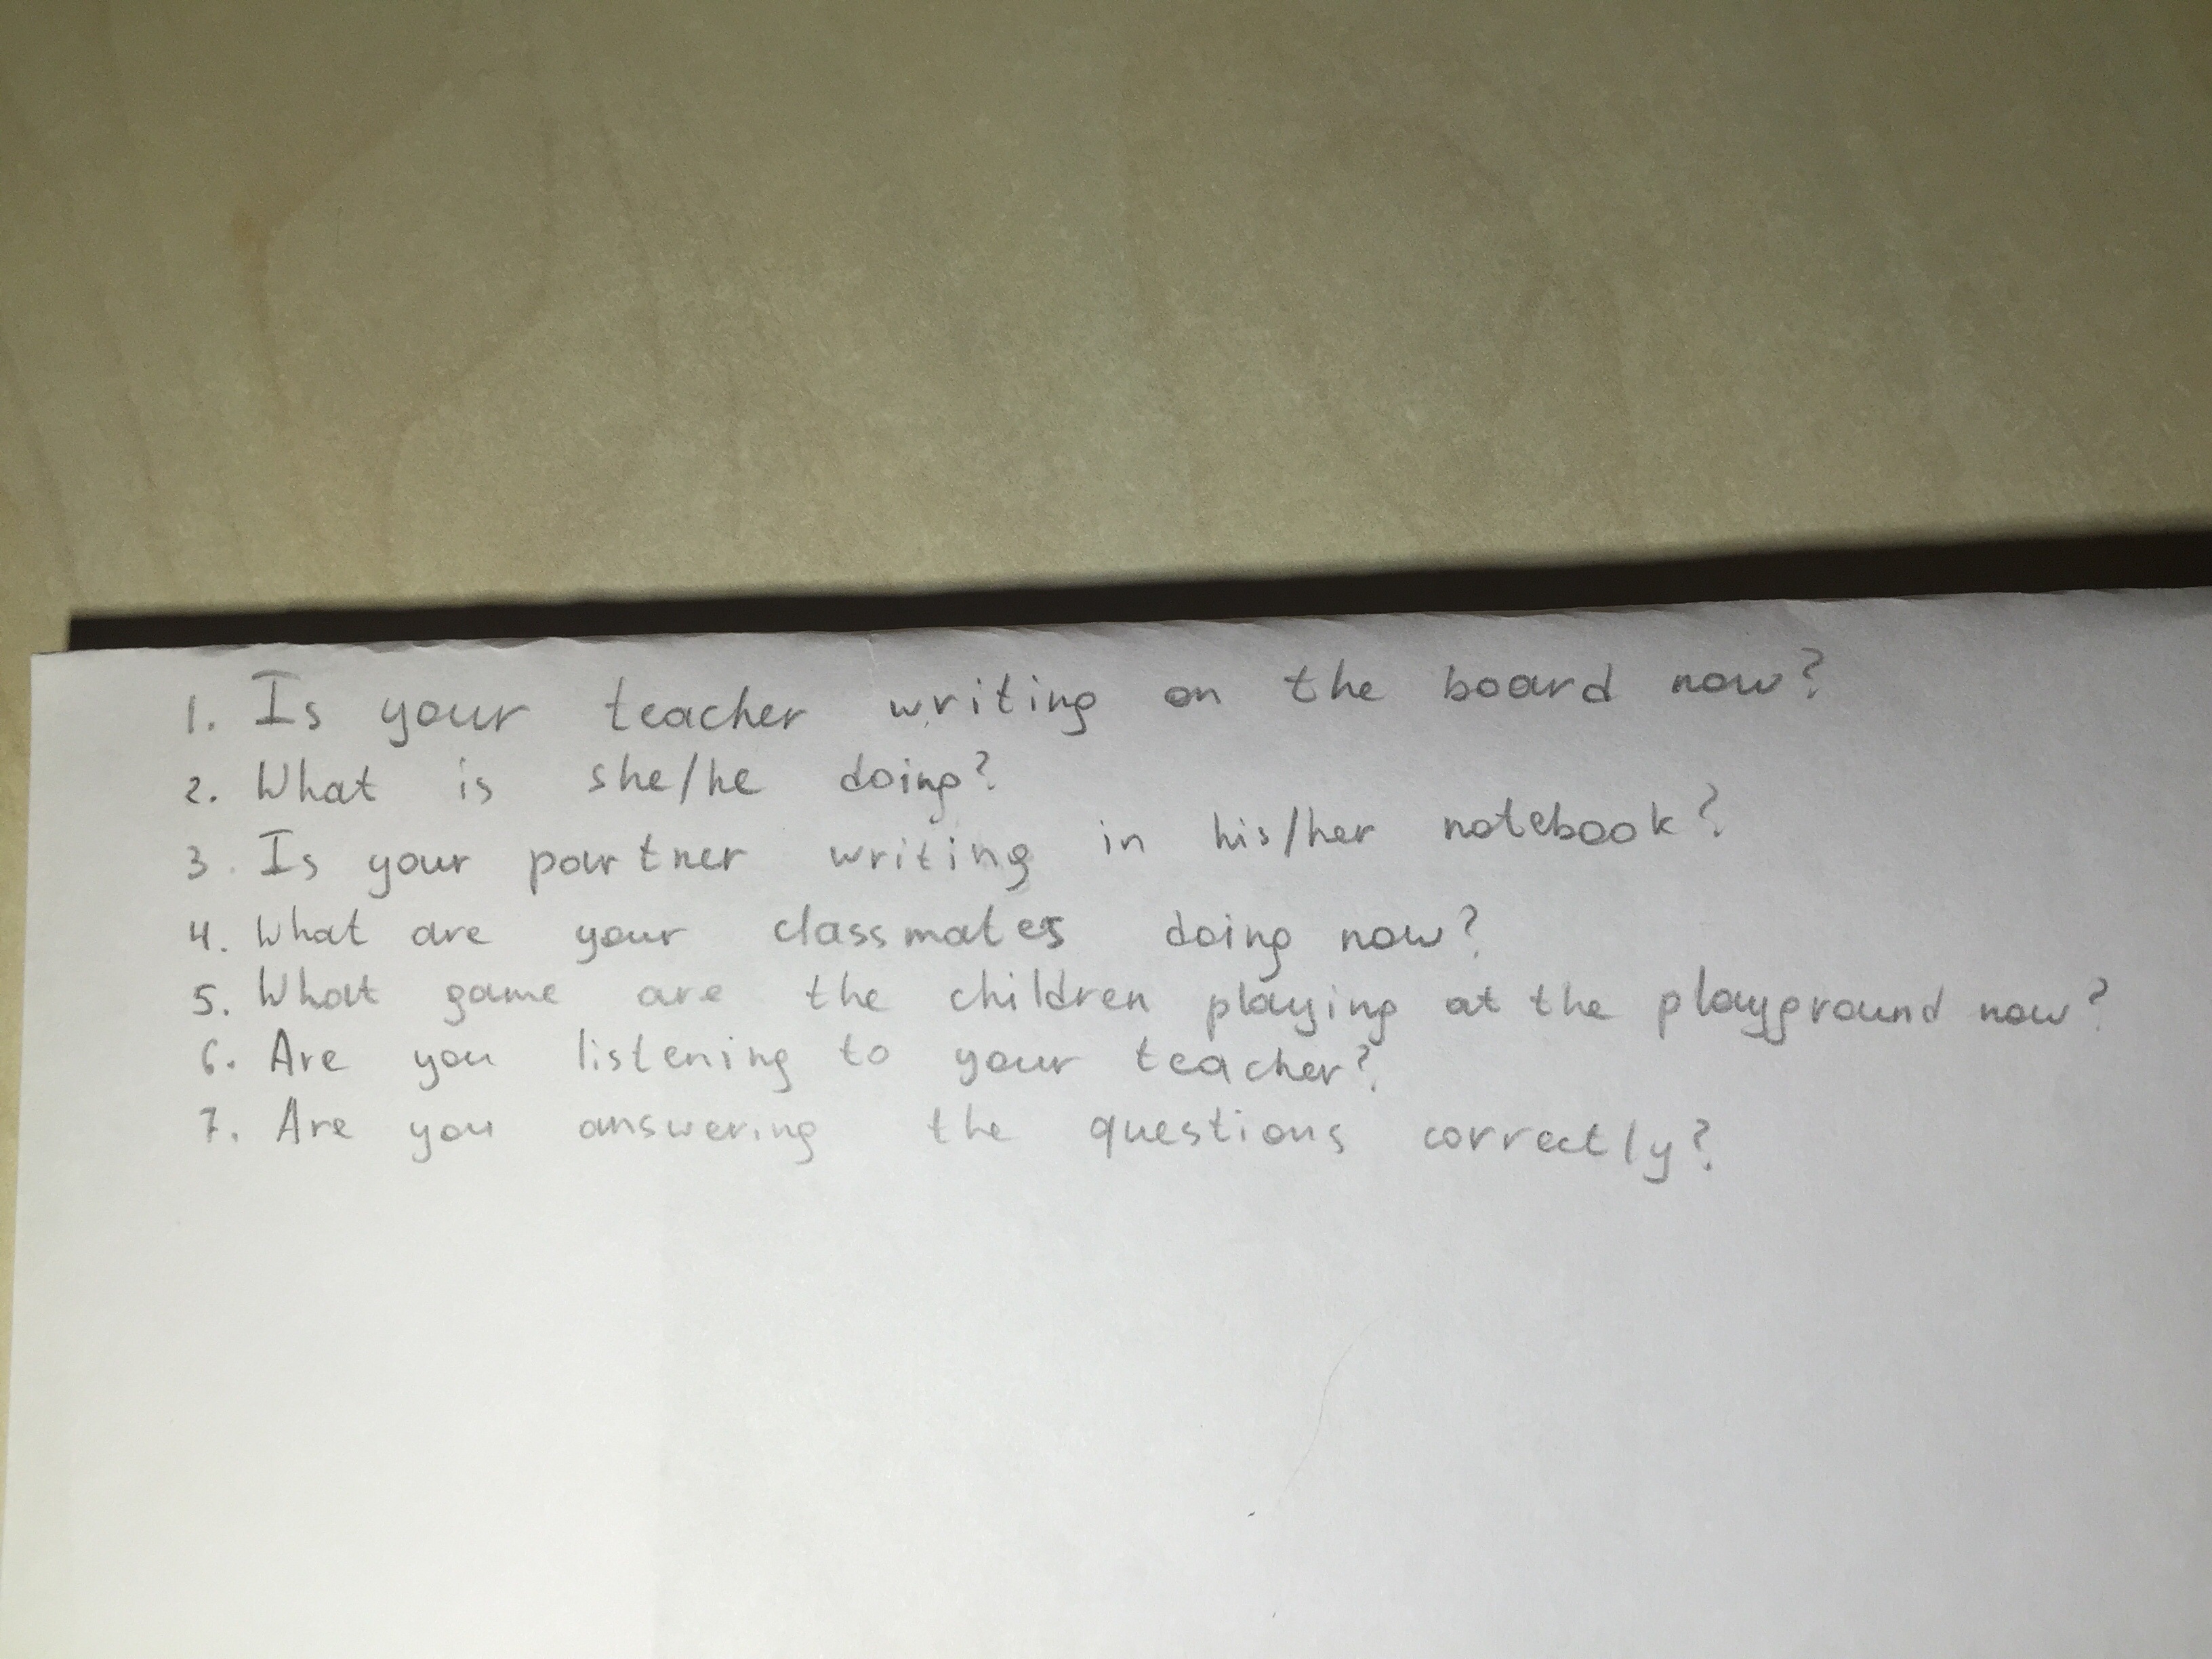 1. Is your teacher writing on the board now?
2. What is she/he doing?
3. Is your partner writing in his/her notebook?
4. What are your classmates doing now?
5. What game are the children playing at the playground now?
6. Are you listening to your teacher?
7. Are you answering the questions correctly?